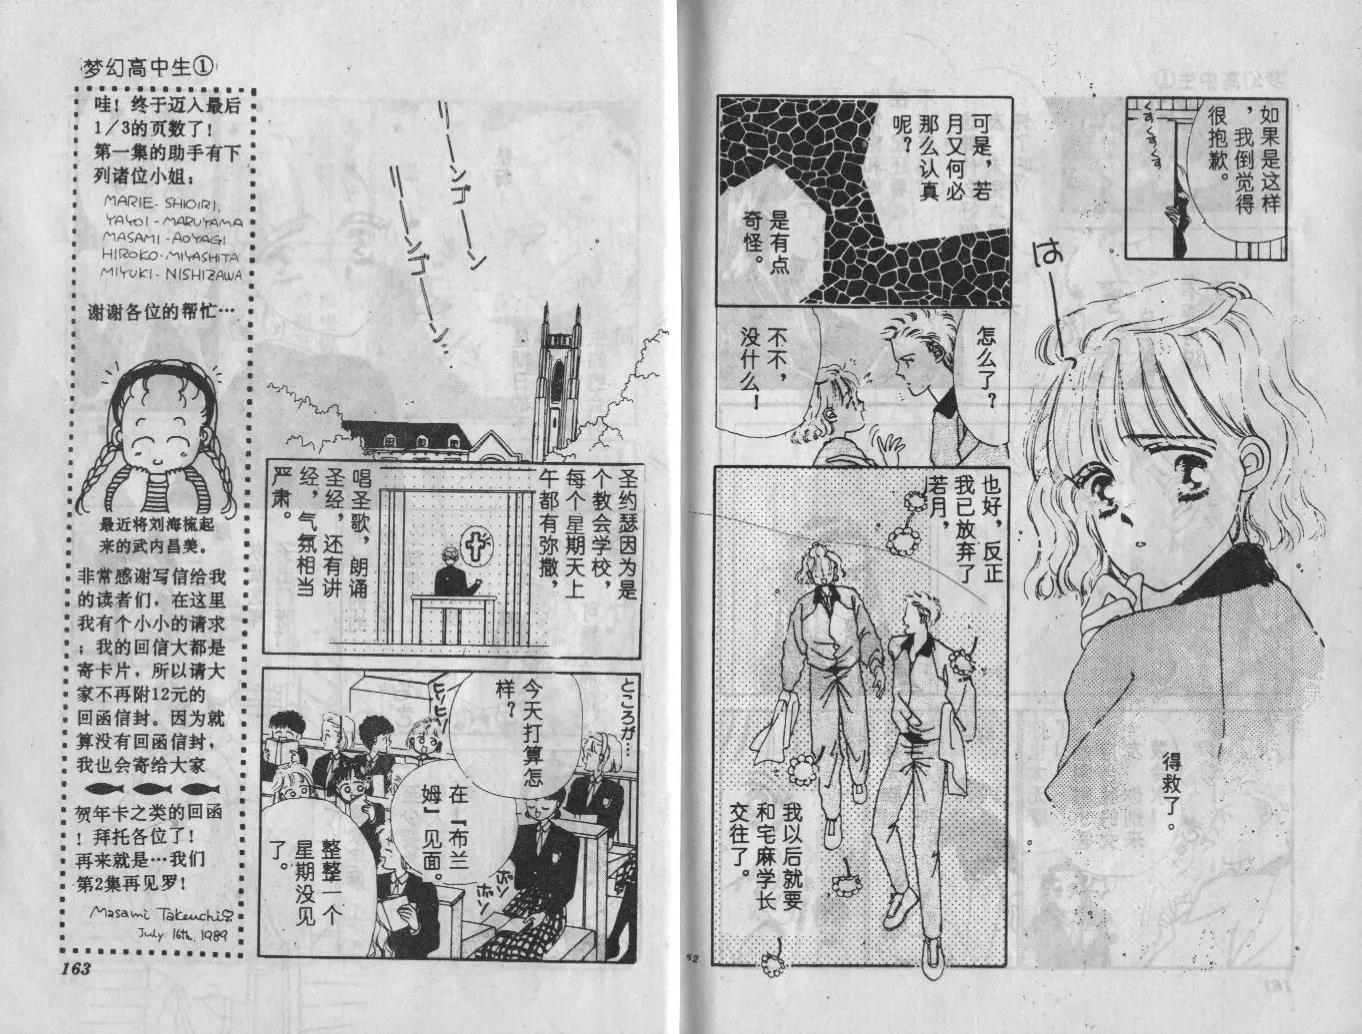 如果是这样
，我倒觉得
很抱歉。
ぐすぐす
は
得救了。
可是，若
月又何必
那么认真
呢？
是有点
奇怪。
怎么了？
不不，
没什么！
也好，反正
我已放弃了
若月，
我以后就要
和宅麻学长
交往了。
62
梦幻高中生①
哇！终于迈入最后
1／3的页数了！
第一集的助手有下
列诸位小姐；
MARIE-SHIOIRI.
YAYOI-MARUYAMA
MASAMI-AOYAGI
HIROKO-MIYASHITA
MIYUKI-NISHIZAWA
谢谢各位的帮忙…
最近将刘海梳起
来的武内昌美。
非常感谢写信给我
的读者们，在这里
我有个小小的请求
；我的回信大都是
寄卡片，所以请大
家不再附12元的
回函信封。因为就
算没有回函信封，
我也会寄给大家
贺年卡之类的回函
！拜托各位了！
再来就是…我们
第2集再见罗！
Masami Takeuchi
July 16th, 1989
163
リーンゴーン
リーンゴーン…
圣约瑟因为是
个教会学校，
每个星期天上
午都有弥撒，
唱圣歌，朗诵
圣经，还有讲
经，气氛相当
严肃。
ところが…
今天打算怎
样？
ヒソヒソ
在「布兰
姆」见面。
ボソボソ
整整一个
星期没见
了。